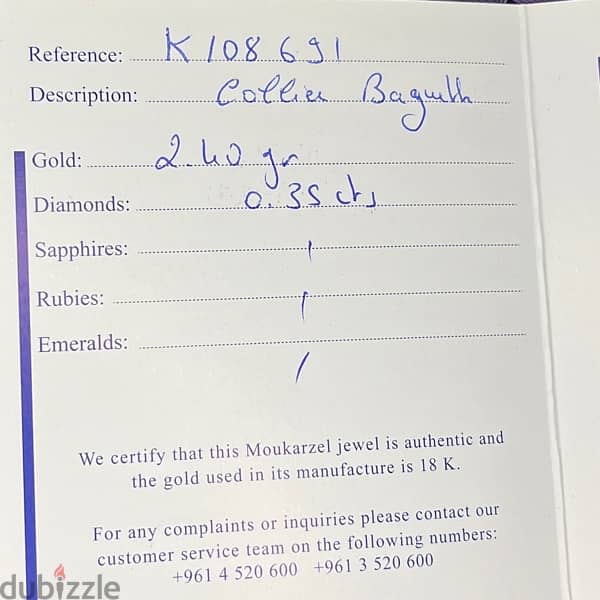 Reference: K108691
Description: Collier Baguette
Gold: 2.40 gr
Diamonds: 0.35 cts
Sapphires: /
Rubies: /
Emeralds: /
We certify that this Moukarzel jewel is authentic and
the gold used in its manufacture is 18 K.
For any complaints or inquiries please contact our
customer service team on the following numbers:
+961 4 520 600 +961 3 520 600
dubizzle